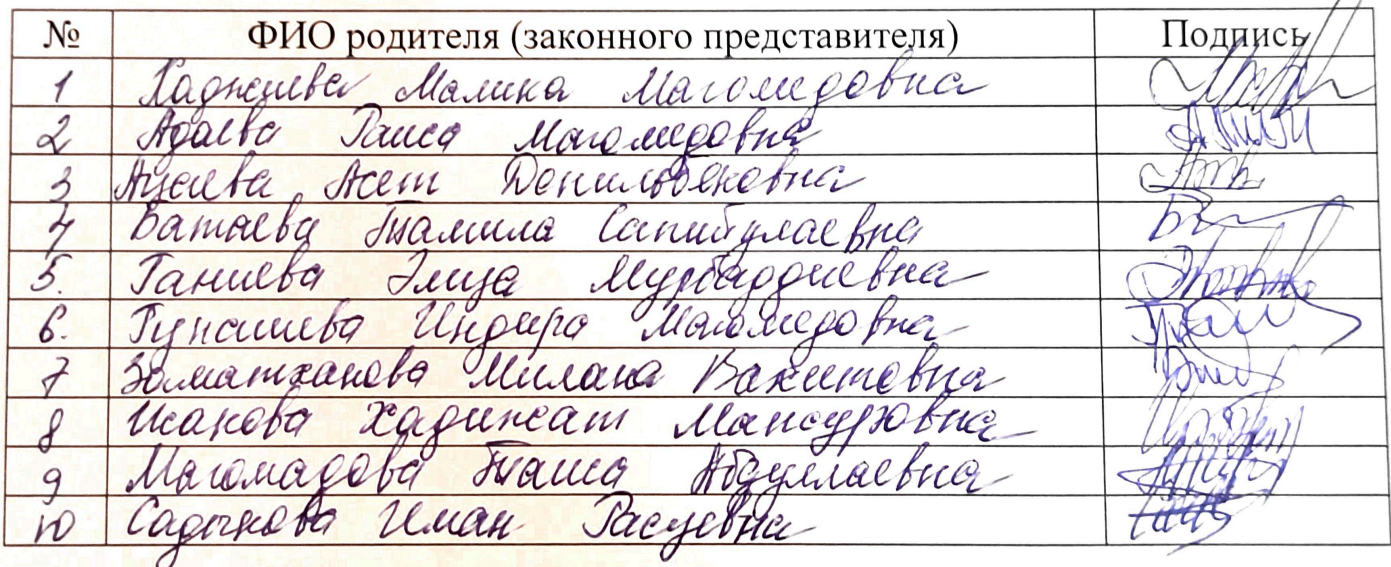 № ФИО родителя (законного представителя) Подпись
1 Хаджиева Малика Магомедовна
2 Адаева Раиса Магомедовна
3 Ацаева Асет Денильбековна
4 Батаева Тамила Сапибулаевна
5. Ганиева Элиза
6. Гунашева Индира Магомедовна
7 Заматханова Милана Вахитовна
8 Исакова Хадижат Мансуровна
9 Магомадова Таиса Абдуллаевна
10 Садыкова Иман